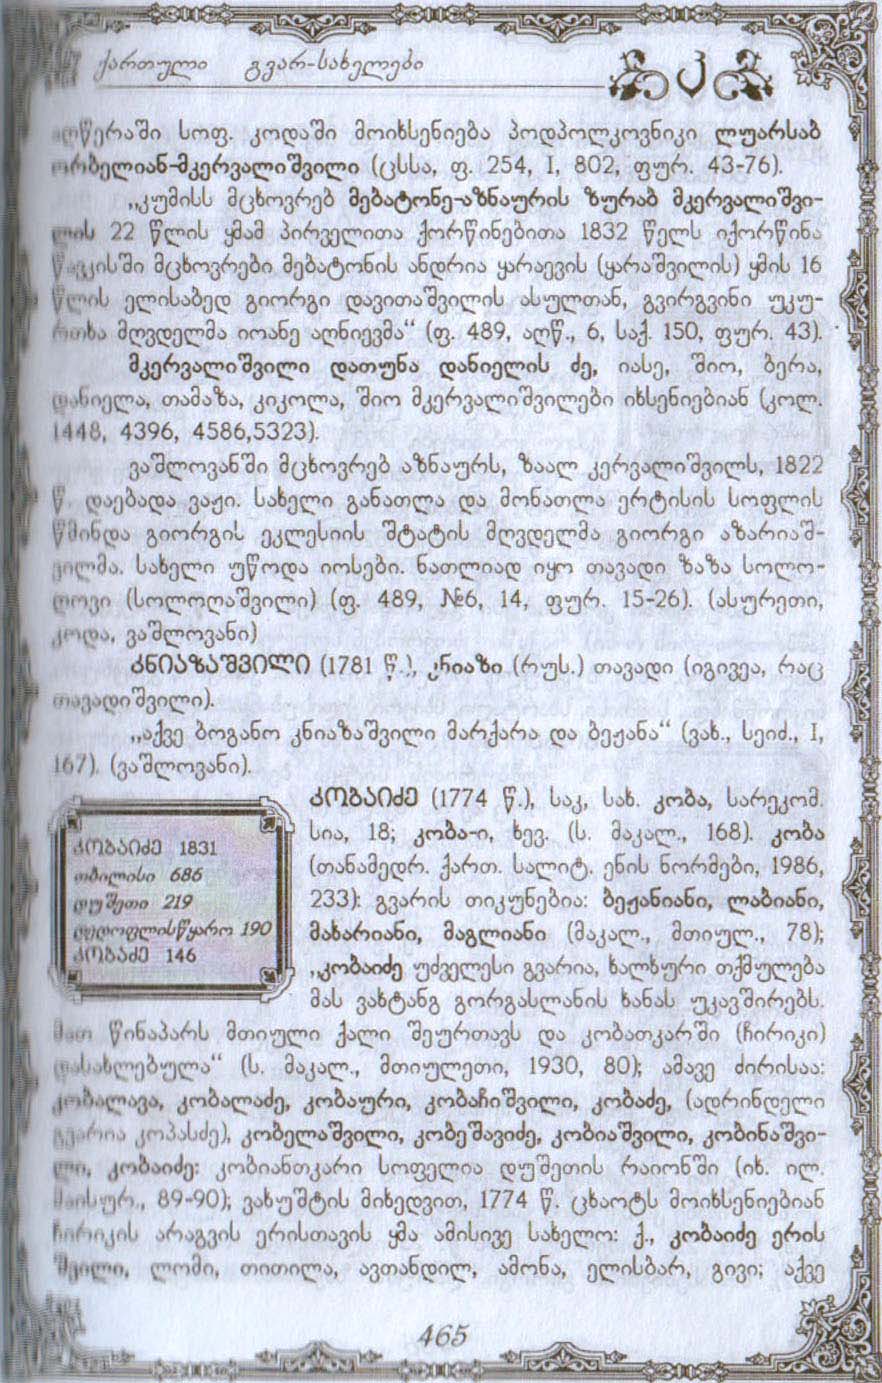 ქართული გვარ-სახელები კ
აღწერაში სოფ. კოდაში მოიხსენიება პოდპოლკოვნიკი ლუარსაბ
ორბელიან-მკერვალიშვილი (ცსსა, ფ. 254, I, 802, ფურ. 43-76).
„კუმისს მცხოვრებ მებატონე-აზნაურის ზურაბ მკერვალიშვი-
ლის 22 წლის ყმამ პირველითა ქორწინებითა 1832 წელს იქორწინა
მცხოვრები მებატონის ანდრია ყარაევის (ყარაშვილის) ყმის 16
წლის ელისაბედ გიორგი დავითაშვილის ასულთან, გვირგვინი უკუ-
რთხა მღვდელმა იოანე აღნიევმა“ (ფ. 489, აღწ., 6, საქ. 150, ფურ. 43).
მკერვალიშვილი დათუნა დანიელის ძე, იასე, შიო, ბერა,
დანიელა, თამაზა, კიკოლა, შიო მკერვალიშვილები იხსენიებიან (კოლ.
1448, 4396, 4586,5323).
ვაშლოვანში მცხოვრებ აზნაურს, ზაალ კერვალიშვილს, 1822
წ. დაებადა ვაჟი. სახელი განათლა და მონათლა ერტისის სოფლის
წმინდა გიორგის ეკლესიის შტატის მღვდელმა გიორგი აზარიაშ-
ვილმა. სახელი უწოდა იოსები. ნათლიად იყო თავადი ზაზა სოლო-
ღოვი (სოლოღაშვილი) (ფ. 489, №6, 14, ფურ. 15-26). (ასურეთი,
კოდა, ვაშლოვანი)
ᲙᲜᲘᲐᲖᲐᲨᲕᲘᲚᲘ (1781 წ.), კნიაზი (რუს.) თავადი (იგივეა, რაც
თავადიშვილი).
„აქვე ბოგანო კნიაზაშვილი მარქარა და ბეჟანა“ (ვახ., სეიძ., I,
167). (ვაშლოვანი).
ᲙᲝᲑᲐᲘᲫᲔ (1774 წ.), საკ, სახ. კობა, სარეკომ.
სია, 18; კობა-ი, ხევ. (ს. მაკალ., 168). კობა
(თანამედრ. ქართ. სალიტ. ენის ნორმები, 1986,
233): გვარის თიკუნებია: ბეჟანიანი, ლაბიანი,
მახარიანი, მაგლიანი (მაკალ., მთიულ., 78);
„კობაიძე უძველესი გვარია, ხალხური თქმულება
მას ვახტანგ გორგასლანის ხანას უკავშირებს.
ᲙᲝᲑᲐᲘᲫᲔ 1831
თბილისი 686
დუშეთი 219
დედოფლისწყარო 190
ᲙᲝᲑᲐᲫᲔ 146
მათ წინაპარს მთიული ქალი შეურთავს და კობათკარში (ჩირიკი)
დასახლებულა“ (ს. მაკალ., მთიულეთი, 1930, 80); ამავე ძირისაა:
კობალავა, კობალაძე, კობაური, კობაჩიშვილი, კობაძე, (ადრინდელი
გვარია კოპასძე), კობელაშვილი, კობეშავიძე, კობიაშვილი, კობინაშვი-
ლი, კობაიძე: კობიანთკარი სოფელია დუშეთის რაიონში (იხ. ილ.
მაისურ., 89-90); ვახუშტის მიხედვით, 1774 წ. ცხაოტს მოიხსენიებიან
ჩირიკის არაგვის ერისთავის ყმა ამისივე სახელო: ქ., კობაიძე ერის
შვილი, ლომი, თითილა, ავთანდილ, ამონა, ელისბარ, გივი; აქვე
465